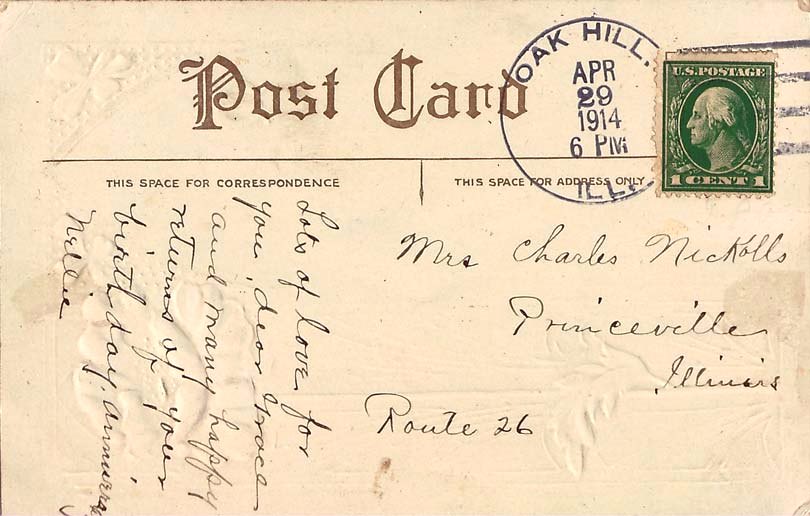 Post Card
OAK HILL.
APR
29
1914
6 PM
ILL.
U.S. POSTAGE
1 CENT 1
THIS SPACE FOR CORRESPONDENCE
THIS SPACE FOR ADDRESS ONLY
Lots of love for
you, dear Grace
and many happy
returns of your
birthday
Nellie
Mrs Charles Nickolls
Princeville
Illinois
Route 26